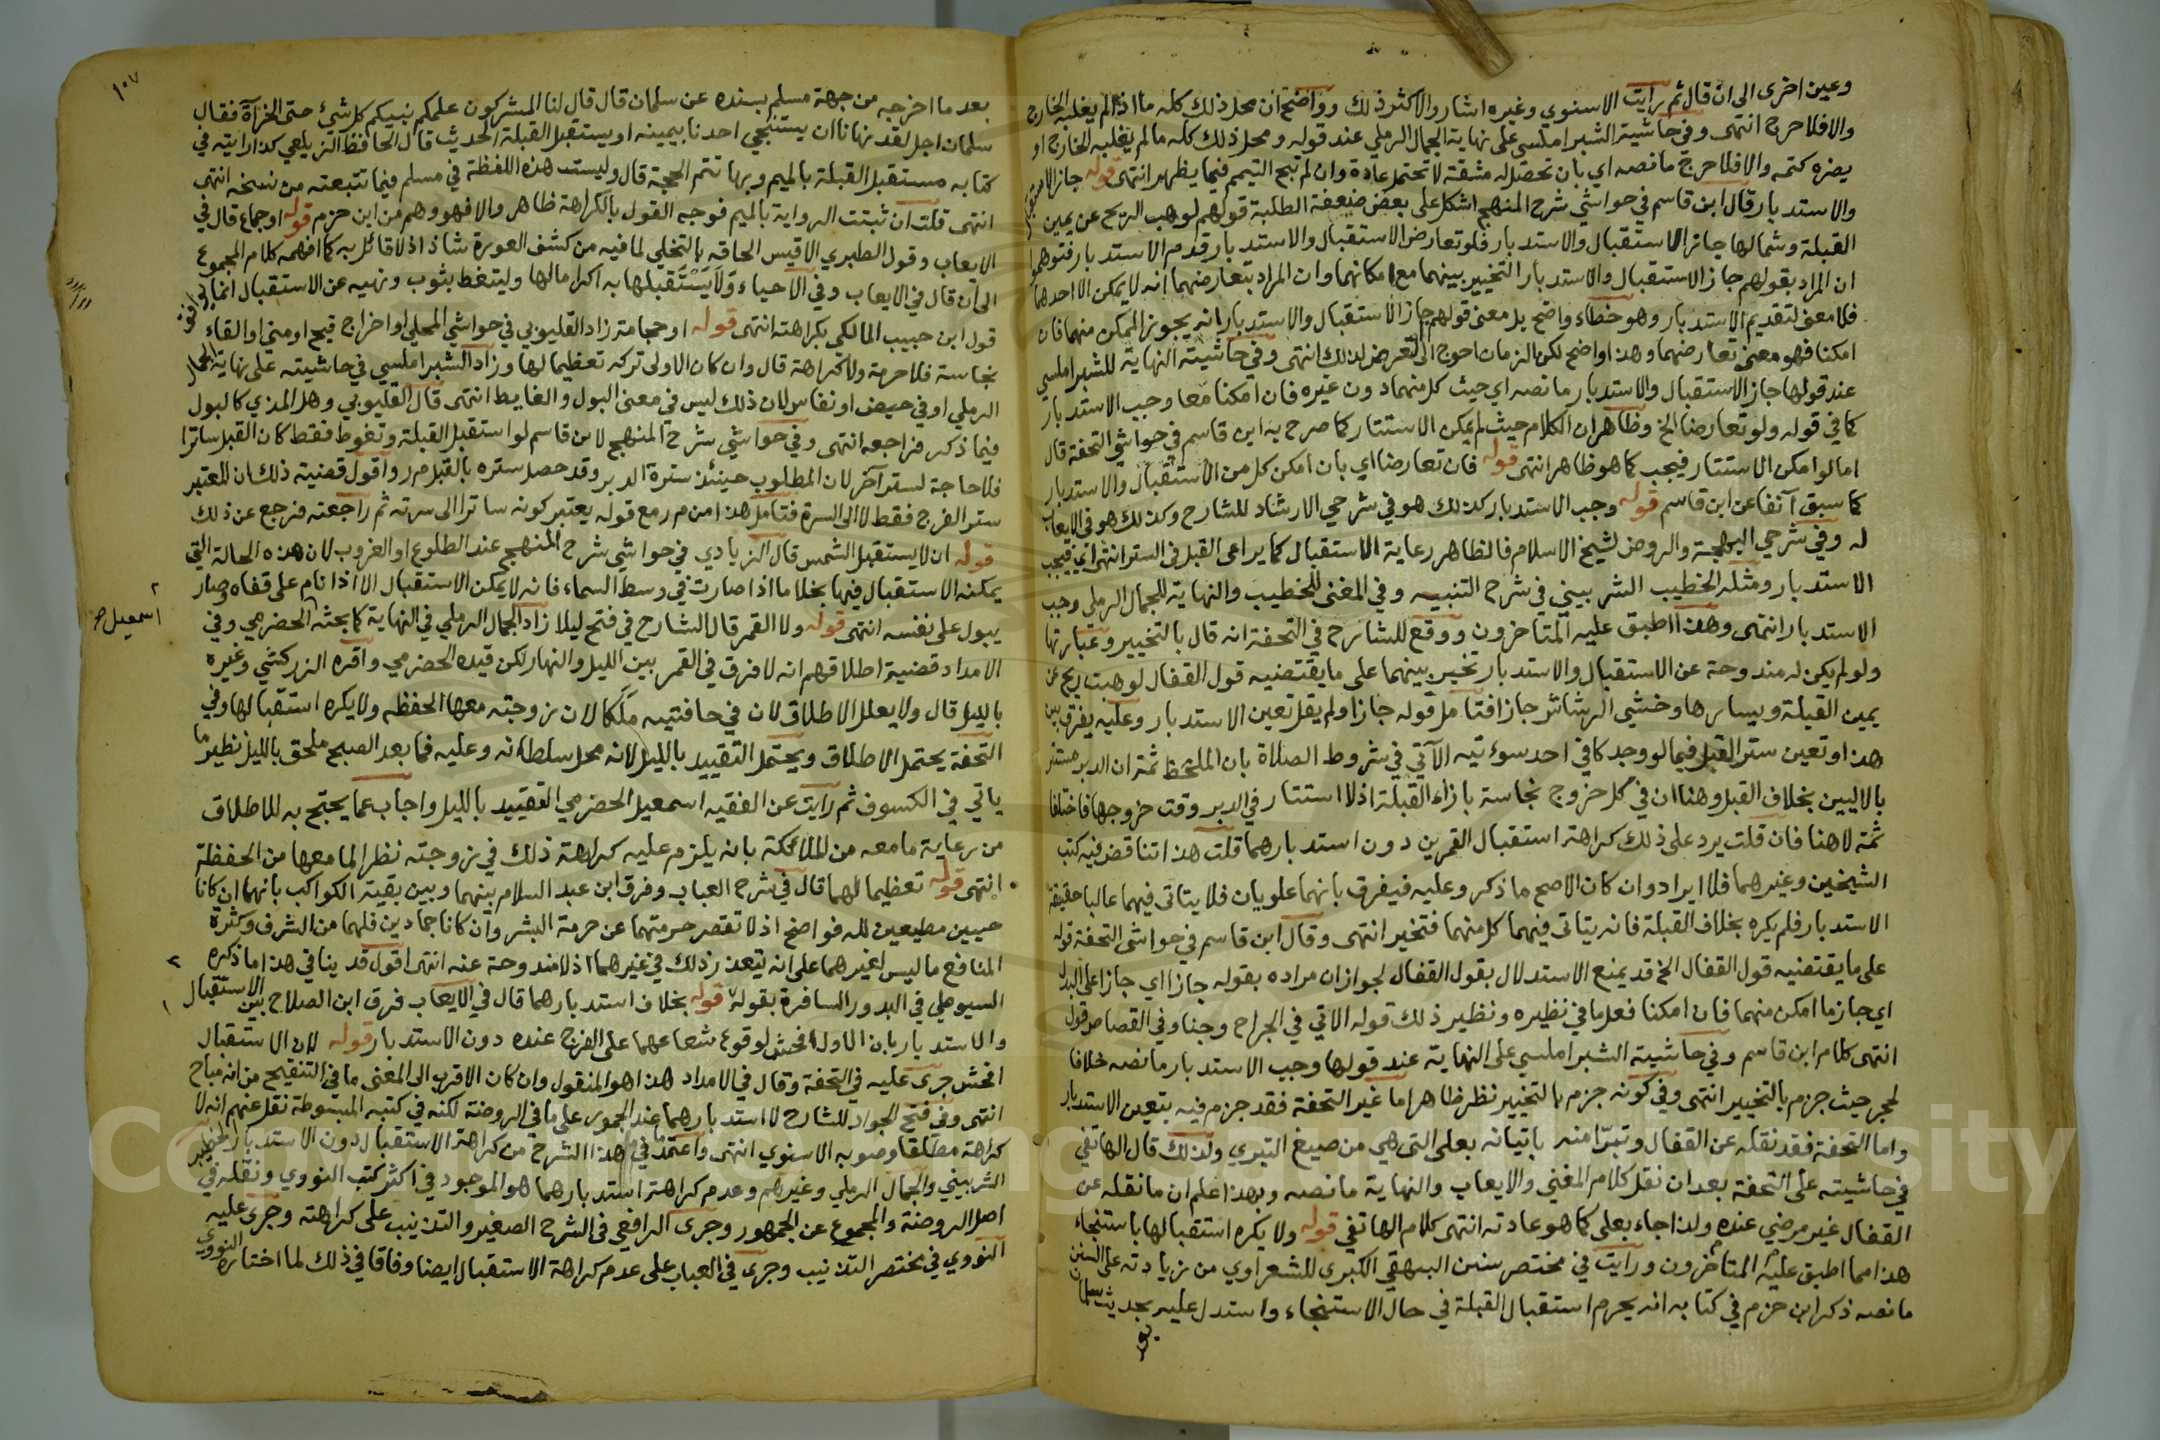 وعين اخرى الى ان قال ثم رايت الاسنوي وغيره اشار والاكثر ذلك وواضح ان محل ذلك كله ما اذا لم يغلبه الخارج
والا فلا حرج انتهى وفي حاشية الشبراملسي على نهاية الجمال الرملي عند قوله ومحل ذلك كله ما لم يغلبه الخارج او
يضره كتمه والا فلا حرج ما نصه اي بان تحصل له مشقة لا تحتمل عادة وان لم تبح التيمم فيما يظهر انتهى قوله جاز الاستقبال
والاستدبار قال ابن قاسم في حواشي شرح المنهج اشكل على بعض ضعفة الطلبة قولهم لو هب الريح عن يمين
القبلة وشمالها جاز الاستقبال والاستدبار فلو تعارض الاستقبال والاستدبار قدم الاستدبار فتوهموا
ان المراد بقولهم جاز الاستقبال والاستدبار التخيير بينهما مع امكانهما وان المراد بتعارضهما انه لا يمكن الا احدهما
فلا معنى لتقديم الاستدبار وهو خطاء واضح بل معنى قولهم جاز الاستقبال والاستدبار انه يجوز الممكن منهما فان
امكنا فهو معنى تعارضهما وهذا واضح لكن الزمان احوج الى التعرض لذلك انتهى وفي حاشية النهاية للشبراملسي
عند قولها جاز الاستقبال والاستدبار ما نصه اي حيث كل منهما دون غيره فان امكنا معا وجب الاستدبار
كما في قوله ولو تعارضا الخ وظاهر ان الكلام حيث لم يمكن الاستتار كما صرح به ابن قاسم في حواشي التحفة قال
اما لو امكن الاستتار فيجب كما هو ظاهر انتهى قوله فان تعارضا اي بان امكن كل من الاستقبال والاستدبار
كما سبق آنفا عن ابن قاسم قوله وجب الاستدبار كذلك هو في شرحي الارشاد للشارح وكذلك هو في الايعاب
له وفي شرحي البهجة والروض لشيخ الاسلام فالظاهر رعاية الاستقبال كما يراعى القبل في الستر انتهى اي فيجب
الاستدبار ومثله الخطيب الشربيني في شرح التنبيه وفي المغني للخطيب والنهاية للجمال الرملي وجب
الاستدبار انتهى وهذا اطبق عليه المتاخرون ووقع للشارح في التحفة انه قال بالتخيير وعبارتها
ولو لم يكن له مندوحة عن الاستقبال والاستدبار تخير بينهما على ما يقتضيه قول القفال لو هبت ريح عن
يمين القبلة ويسارها وخشي الرشاش جازا فتامل قوله جازا ولم يقل تعين الاستدبار وعليه يفرق بين
هذا وتعين ستر القبل فيما لو وجد كافي احد سوءتيه الآتي في شروط الصلاة بان الملحظ ثمة ان الدبر مستتر
بالاليين بخلاف القبل وهنا ان في كل خروج نجاسة بازاء القبلة اذ لا استتار في الدبر وقت خروجها فاختلفا
ثمة لا هنا فان قلت يرد على ذلك كراهة استقبال القمرين دون استدبارهما قلت هذا تناقض فيه كتب
الشيخين وغيرهما فلا ايراد وان كان الاصح ما ذكر وعليه فيفرق بانهما علويان فلا يتاتى فيهما غالبا حقيقة
الاستدبار فلم يكره بخلاف القبلة فانه يتاتى فيهما كل منهما فتخير انتهى وقال ابن قاسم في حواشى التحفة قوله
على ما يقتضيه قول القفال الخ قد يمنع الاستدلال بقول القفال لجواز ان مراده بقوله جازا اي جازا على البدل
اي جاز ما امكن منهما فان امكنا فعل ما في نظيره ونظير ذلك قوله الاتي في الجراح وجنا وفي القصاص قول
انتهى كلام ابن قاسم وفي حاشية الشبراملسي على النهاية عند قولها وجب الاستدبار ما نصه خلافا
لحجر حيث جزم بالتخيير انتهى وفي كونه جزم بالتخيير نظر ظاهر اما غير التحفة فقد جزم فيه بتعين الاستدبار
واما التحفة فقد نقله عن القفال وتبرا منه باتيانه بعلى التي هي من صيغ التبري ولذلك قال الهاتفي
في حاشيته على التحفة بعد ان نقل كلام المغني والايعاب والنهاية ما نصه وبهذا اعلم ان ما نقله عن
القفال غير مرضي عنده ولذا جاء بعلى كما هو عادته انتهى كلام الهاتفي قوله ولا يكره استقبالها باستنجاء
هذا مما اطبق عليه المتاخرون ورايت في مختصر سنن البيهقي الكبرى للشعراوي من زيادته على السنن
ما نصه ذكر ابن حزم في كتابه انه يحرم استقبال القبلة في حال الاستنجاء واستدل عليه بحديث سلمان
١٠٧
بعد ما اخرجه من جهة مسلم بسنده عن سلمان قال قال لنا المشركون علمكم نبيكم كل شئ حتى الخراآة فقال
سلمان اجل لقد نهانا ان يستنجي احدنا بيمينه او يستقبل القبلة الحديث قال الحافظ الزيلعي كذا رايته في
كتابه مستقبل القبلة بالميم وبها تتم الحجة قال وليست هذه اللفظة في مسلم فيما تتبعته من نسخه انتهى
انتهى قلت ان ثبتت الرواية بالميم فوجه القول بالكراهة ظاهر والا فهو وهم من ابن حزم قوله او جماع قال في
الايعاب وقول الطبري الاقيس الحاقه بالتخلي لما فيه من كشف العورة شاذ اذ لا قائل به كما افهمه كلام المجموع
الى ان قال في الايعاب وفي الاحياء ولا يستقبلها به اكراما لها وليتغط بثوب ونهيه عن الاستقبال انما يوافق
قول ابن حبيب المالكي بكراهته انتهى قوله او حجامة زاد القليوبي في حواشي المحلي او اخراج قيح او مني او القاء
نجاسة فلا حرمة ولا كراهة قال وان كان الاولى تركه تعظيما لها وزاد الشبراملسي في حاشيته على نهاية الجمال
الرملي او في حيض او نفاس لان ذلك ليس في معنى البول والغايط انتهى قال القليوبي وهل المذي كالبول
فيما ذكر فراجعه انتهى وفي حواشي شرح المنهج لابن قاسم لو استقبل القبلة وتغوط فقط كان القبل ساترا
فلا حاجة لستر آخر لان المطلوب حينئذ سترة الدبر وقد حصل ستره بالقبل م ر واقول قضية ذلك ان المعتبر
ستر الفرج فقط لا الى السرة فتامل هذا من م ر مع قوله يعتبر كونه ساترا الى سرته ثم راجعته فرجع عن ذلك
قوله ان لا يستقبل الشمس قال الزيادي في حواشي شرح المنهج عند الطلوع او الغروب لان هذه الحالة التي
يمكنه الاستقبال فيها بخلاف ما اذا صارت في وسط السماء فانه لا يمكن الاستقبال الا اذا نام على قفاه وصار
يبول على نفسه انتهى قوله ولا القمر قال الشارح في فتح ليلا زاد الجمال الرملي في النهاية كما بحثه الحضرمي وفي
اسمعيل صح
الامداد قضية اطلاقهم انه لا فرق في القمر بين الليل والنهار لكن قيده الحضرمي واقره الزركشي وغيره
بالليل قال ولا يعلل الاطلاق لان في حافتيه ملكا لان زوجته معها الحفظه ولا يكره استقبالها وفي
التحفة يحتمل الاطلاق ويحتمل التقييد بالليل لانه محل سلطانه وعليه فما بعد الصبح ملحق بالليل نظير ما
ياتي في الكسوف ثم رايت عن الفقيه اسمعيل الحضرمي التقييد بالليل واجاب عما يحتج به للاطلاق
من رعاية ما معه من الملائكة بانه يلزم عليه كراهة ذلك في زوجته نظرا لما معها من الحفظة
انتهى قوله تعظيما لهما قال في شرح العباب وفرق ابن عبد السلام بينهما وبين بقية الكواكب بانهما ان كانا
حيين مطيعين لله فواضح اذ لا تقصر حرمتهما عن حرمة البشر وان كانا جمادين فلهما من الشرف وكثرة
المنافع ما ليس لغيرهما على انه يتعذر ذلك في غيرهما اذ لا مندوحة عنه انتهى اقول قد ينافي هذا ما ذكره
السيوطي في البدور السافرة بقوله قوله بخلاف استدبارهما قال في الايعاب فرق ابن الصلاح بين الاستقبال
والاستدبار بان الاول افحش لوقوع شعاعهما على الفرج عنده دون الاستدبار قوله لان الاستقبال
افحش جرى عليه في التحفة وقال في الامداد هذا هو المنقول وان كان الاقرب الى المعنى ما في التنقيح من انه مباح
انتهى وفي فتح الجواد للشارح لا استدبارهما عند الجمهور على ما في الروضة لكنه في كتبه المبسوطة نقل عنهم انه لا
كراهة مطلقا وصوبه الاسنوي انتهى واعتمد ما في هذا الشرح من كراهة الاستقبال دون الاستدبار الخطيب
الشربيني والجمال الرملي وغيرهم وعدم كراهة استدبارهما هو الموجود في اكثر كتب النووي ونقله في
اصل الروضة والمجموع عن الجمهور وجرى الرافعي في الشرح الصغير والتذنيب على كراهته وجرى عليه
النووي في مختصر التذنيب وجرى في العباب على عدم كراهة الاستقبال ايضا وفاقا في ذلك لما اختاره النووي